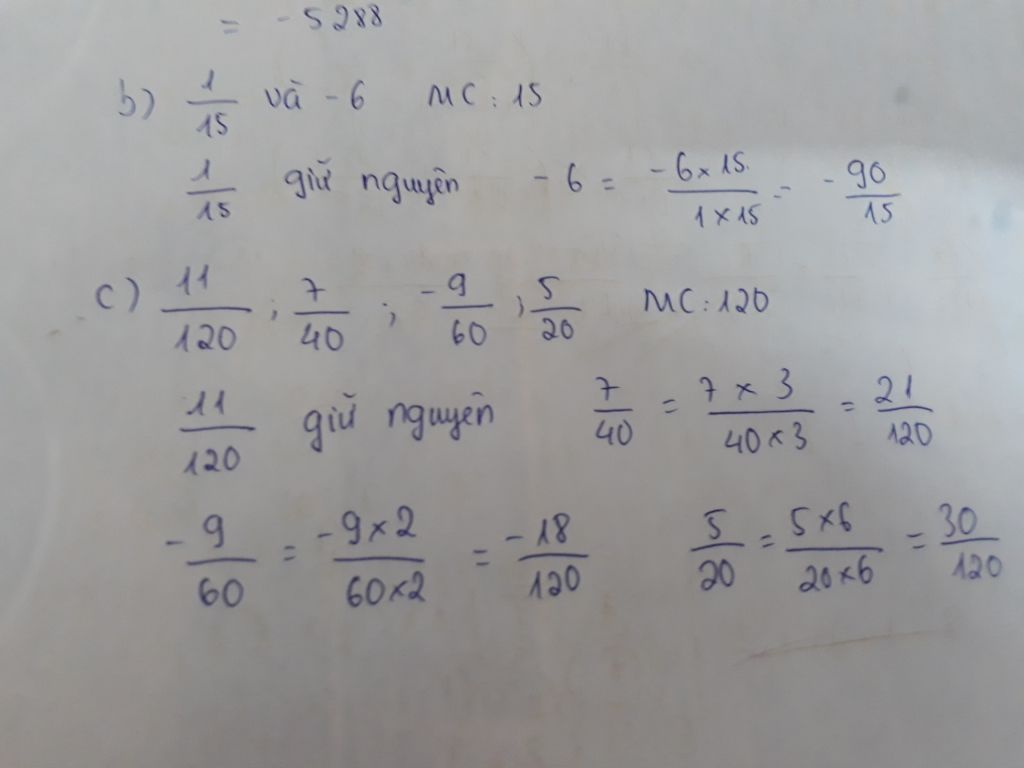 = -5288
b) 1/15 và -6 MC: 15
1/15 giữ nguyên -6 = -6×15/1×15 = -90/15
c) 11/120 ; 7/40 ; -9/60 ; 5/20 MC: 120
11/120 giữ nguyên 7/40 = 7 × 3/40×3 = 21/120
-9/60 = -9×2/60×2 = -18/120 5/20 = 5×6/20×6 = 30/120